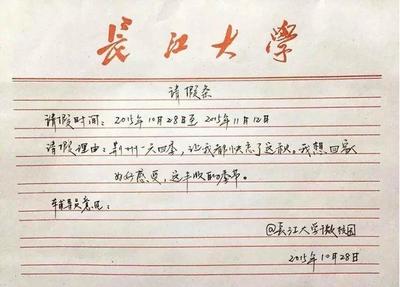 長江大學
请假条
请假时间：2015年10月28日至2015年11月12日
请假理由：荆州一天四季，让我都快忘了这秋。我想回家
好好感受，这丰收的季节。
辅导员意见：
@长江大学微校园
2015年10月28日